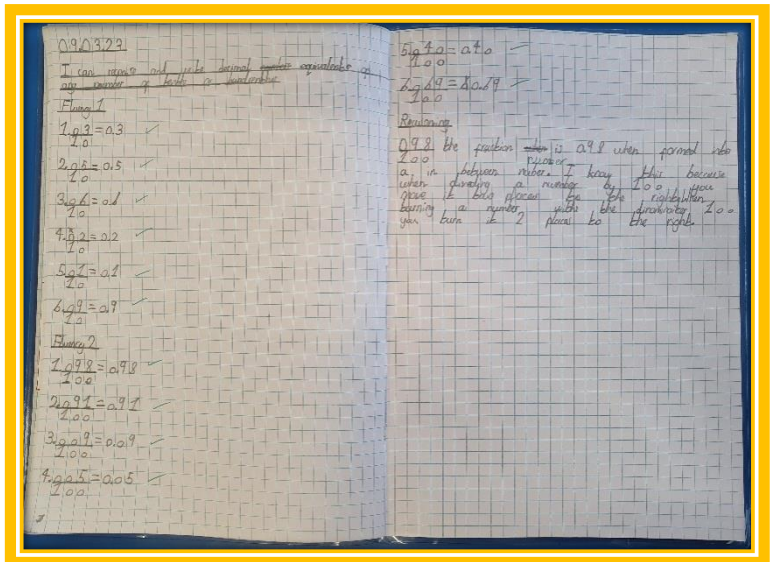 09.03.23
I can recognise and write decimal equivalents of
any number of tenths or hundredths
Fluency 1
1. 0.3/10 = 0.3 ✓
2. 0.5/10 = 0.5 ✓
3. 0.6/10 = 0.6 ✓
4. 0.2/10 = 0.2 ✓
5. 0.1/10 = 0.1 ✓
6. 0.9/10 = 0.9 ✓
Fluency 2
1. 0.98/100 = 0.98 ✓
2. 0.91/100 = 0.91 ✓
3. 0.09/100 = 0.09 ✓
4. 0.05/100 = 0.05 ✓
5. 0.40/100 = 0.40 ✓
6. 0.69/100 = 0.69 ✓
Reasoning
0.98/100 the fraction is 0.98 when formed into
a in between number. I know this because
when dividing a number by 100 you
move it two places to the right. when
turning a number with the denominator 100
you turn it 2 places to the right.